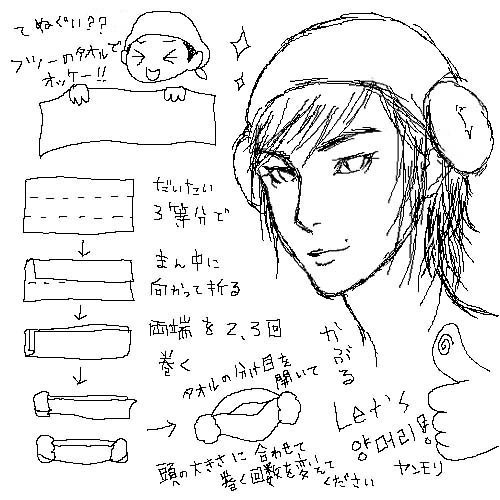 てぬぐい??
フツーのタオルで
オッケー!!
だいたい
3等分で
まん中に
向かって折る
両端を2,3回
巻く
タオルの分け目を
開いて
かぶる
頭の大きさに合わせて
巻く回数を変えて
ください
Let's
양머리!
ヤンモリ